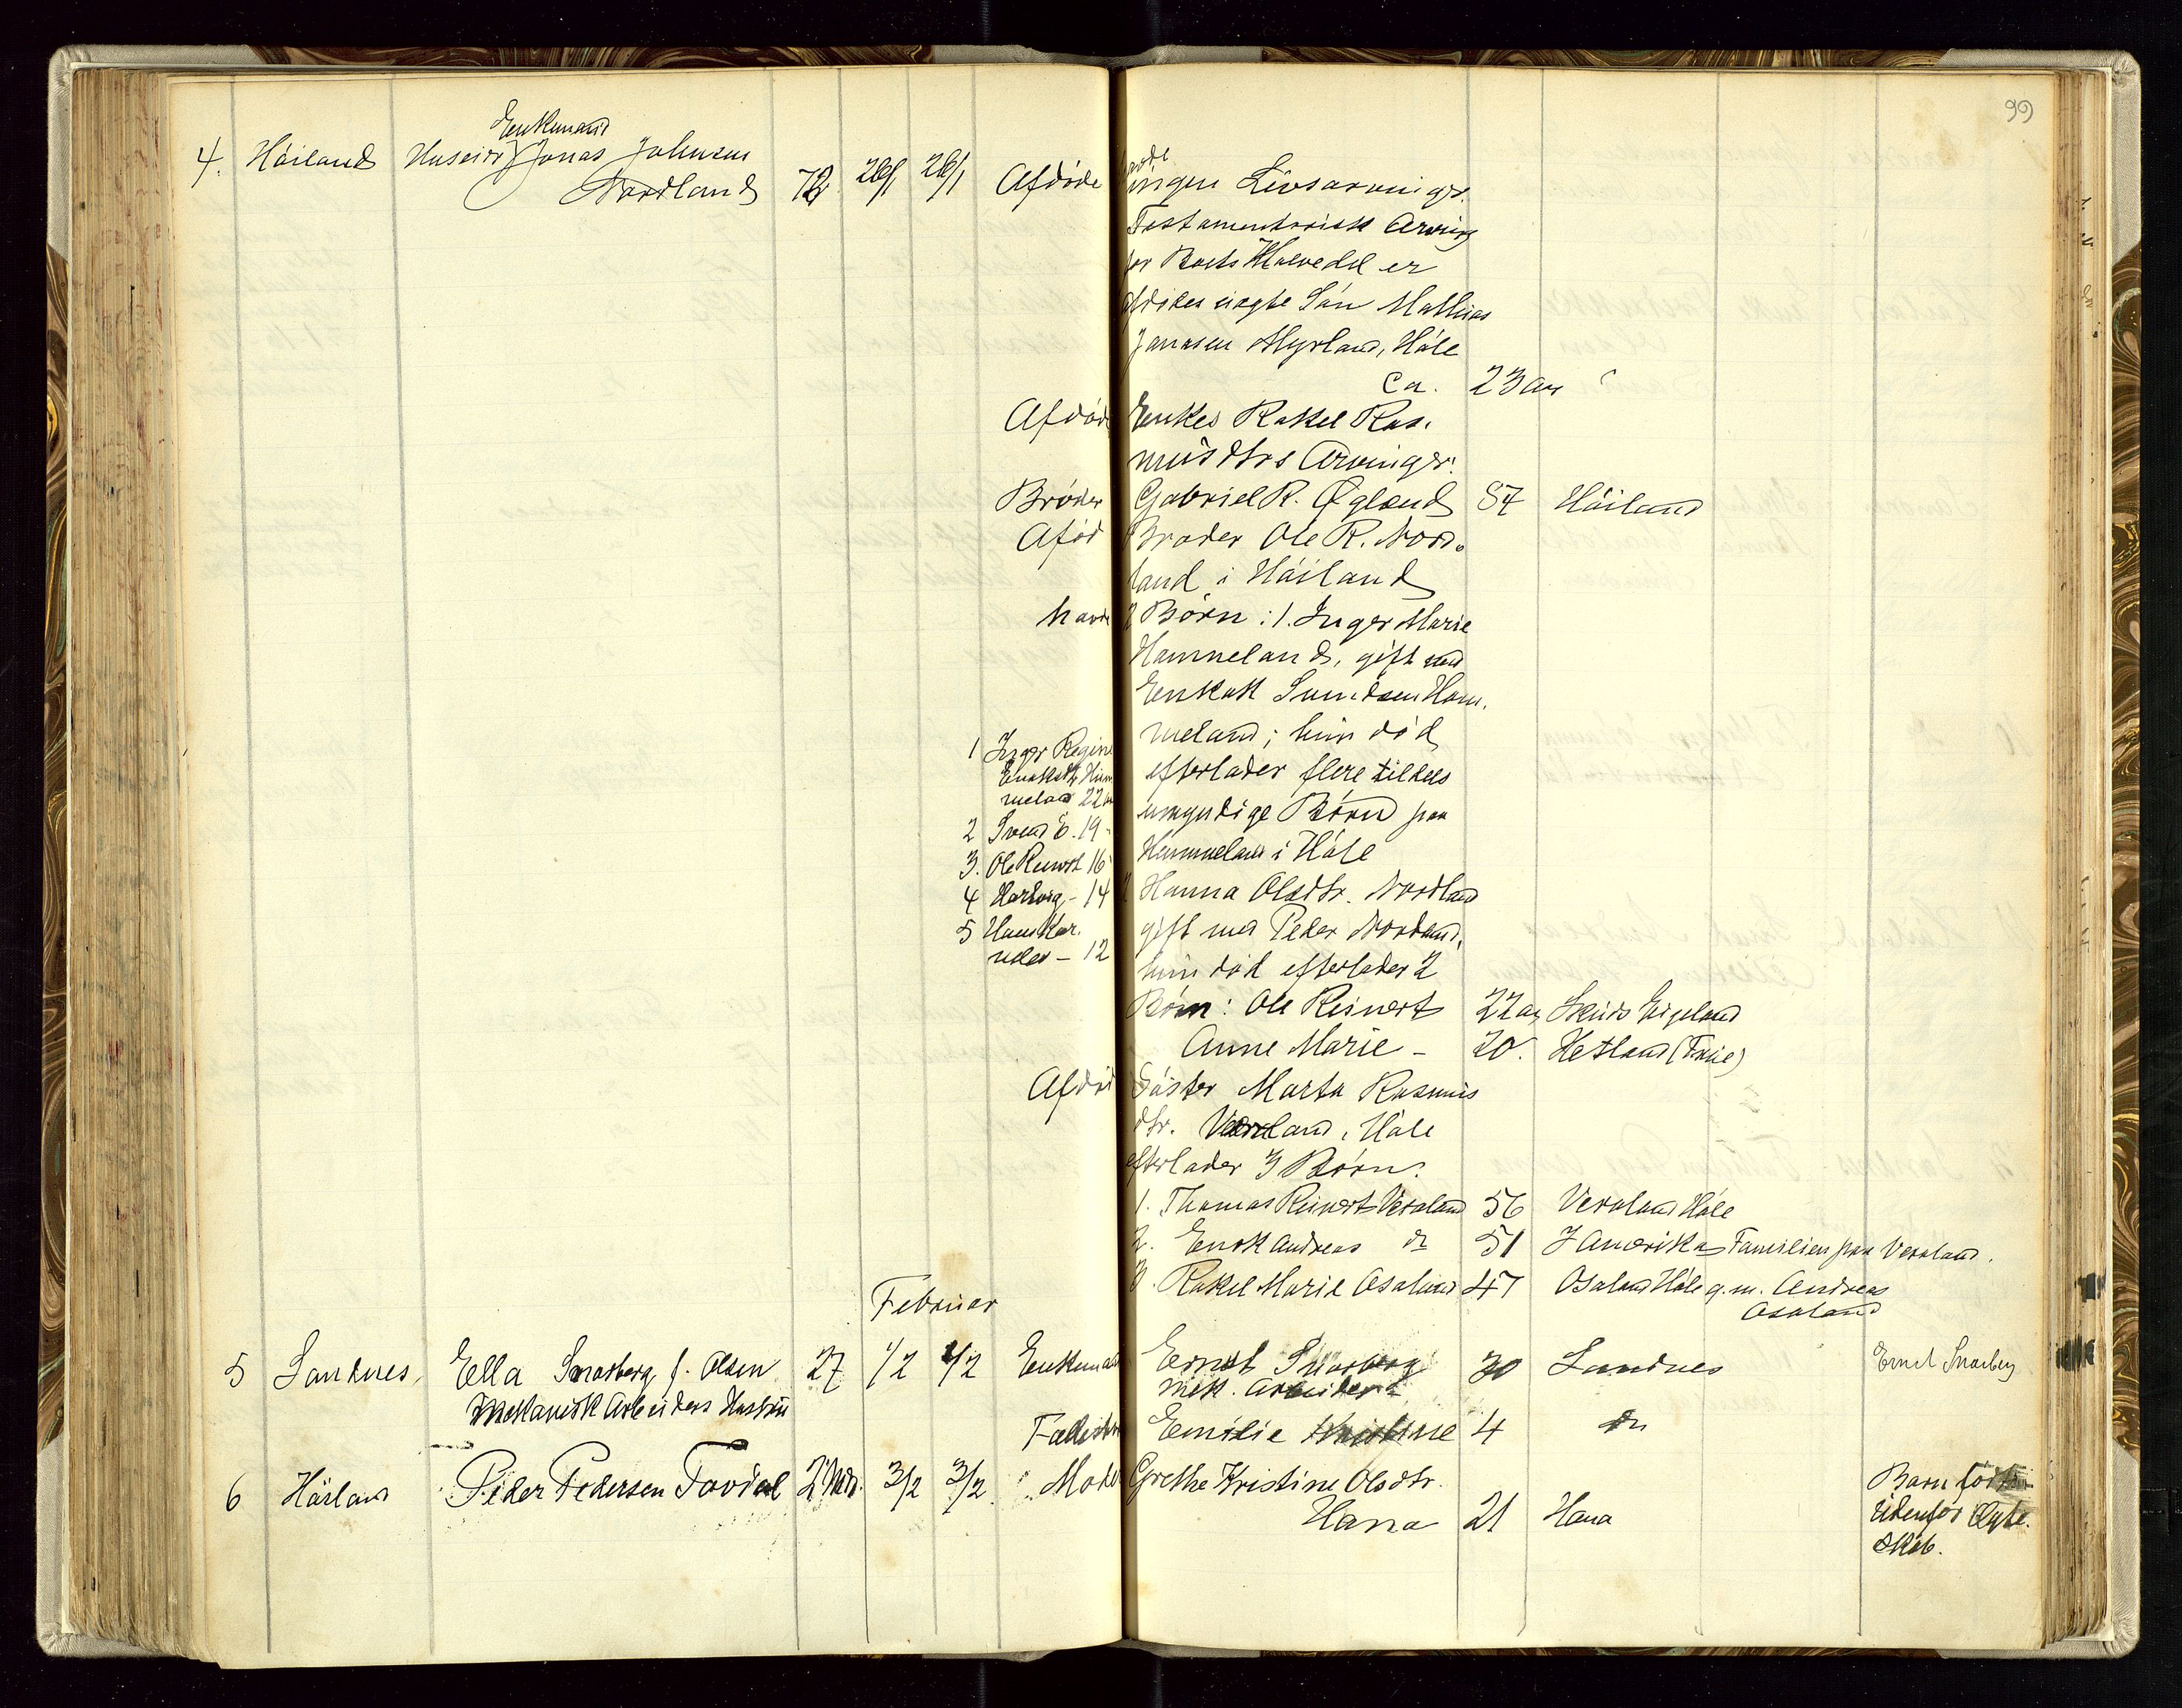 99
Enkemand
4. Höiland Huseier Jonas Johnsen
Nordland 72 26/1 26/1 Afdöde havde
ingen Livsarvinger.
Testamentarisk Arving
for Boets Halvedel er
afdödes uægte Sön Mathias
Jonasen Myrland, Håle
ca. 23 aar
Afdöd Enkes Rakel Ras-
musdtrs Arvinger:
Bröder Gabriel R. Øgland 87 Höiland
Afdöd Broder Ole R. Nord-
land i Höiland
havde 2 Börn: 1. Inger Marie
Hammeland, gift med
Enok Svendsen Ham-
meland; hun död
efterlader flere tildels
umyndige Börn paa
Hammeland i Håle
1 Inger Regine
Enoksdtr Ham
meland 22 aar
2 Svend E. 19 -
3. Ole Reinert 16
4 Hartvig - 14
5
- 12
2 Hanna Olsdtr. Nordland
gift med Peder Nordland,
hun död efterlader 2
Börn: Ole Reinert 22 aar Eigeland
Anne Marie - 20. Hetland
Afdöd Söster Marta Rasmus
dtr. Veraland i Håle
efterlader 3 Börn:
1. Thomas Reinert Veraland 56 Veraland Håle
2. Enok Andreas do 51 I Amerika Familien paa Veraland.
3. Rakel Marie Osaland 47 Osaland Håle g.m. Andreas
Osaland
Februar
5 Sandnes, Ella Snarberg f. Olsen 27 1/2 1/2 Enkemand Ernst Snarberg 30 Sandnes Ernst Snarberg
Mekanisk Arbeiders Hustru mek. Arbeider
Fællesbarn Emilie 4 do
6 Höiland Peder Pedersen Tovdal 2 Mdr. 3/2 3/2 Moder Grethe Kristine Olsdtr.
Hana 21 Hana
Barn födt
udenfor Ægte-
skab.